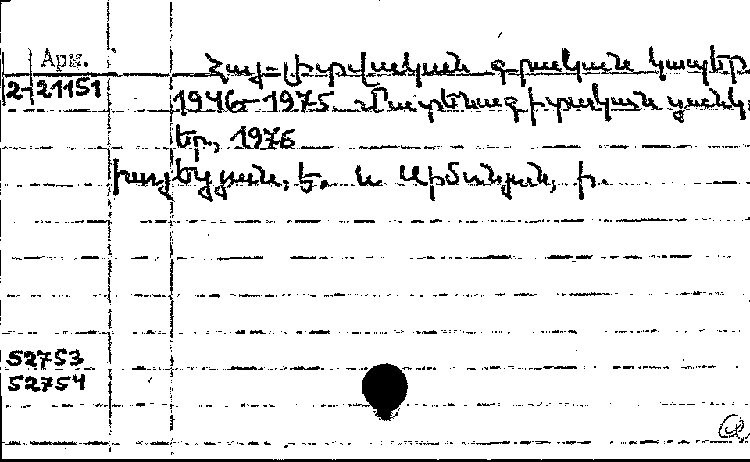 Арм.
2-21151
Հայ-լիտվական գրական կապեր
1946-1975. Մատենագիտական ցանկ,
Եր., 1976
Խաչեյան, Ե. և Սիմոնյան, Ի.
52753
52754